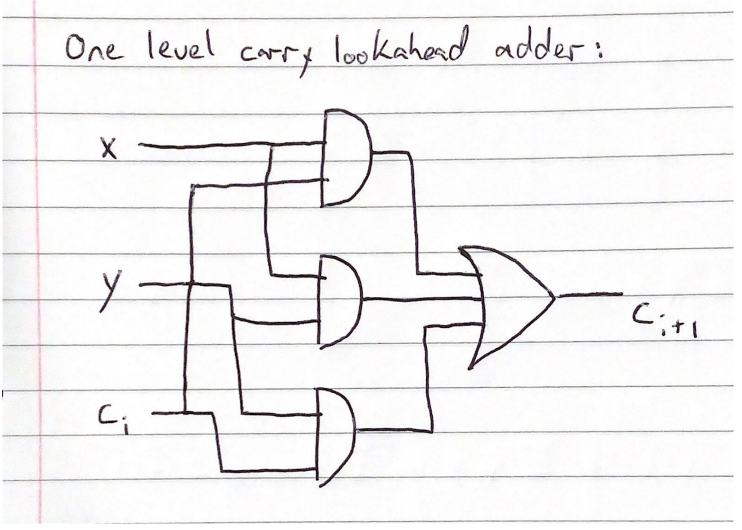 One level carry lookahead adder:
x
y
Cᵢ
Cᵢ₊₁